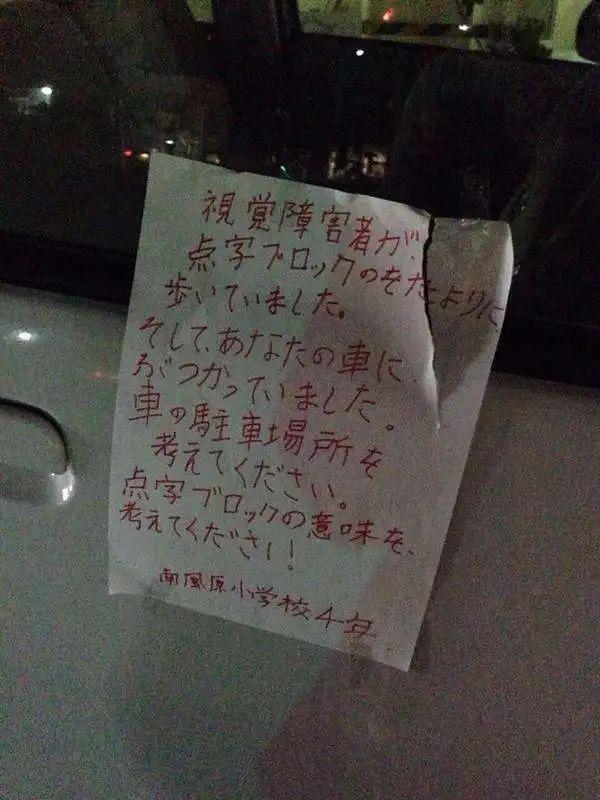 視覚障害者が、
点字ブロックのをたよりに
歩いていました。
そして、あなたの車に、
ぶつかっていました。
車の駐車場所を
考えてください。
点字ブロックの意味を、
考えてください!
南風原小学校4年